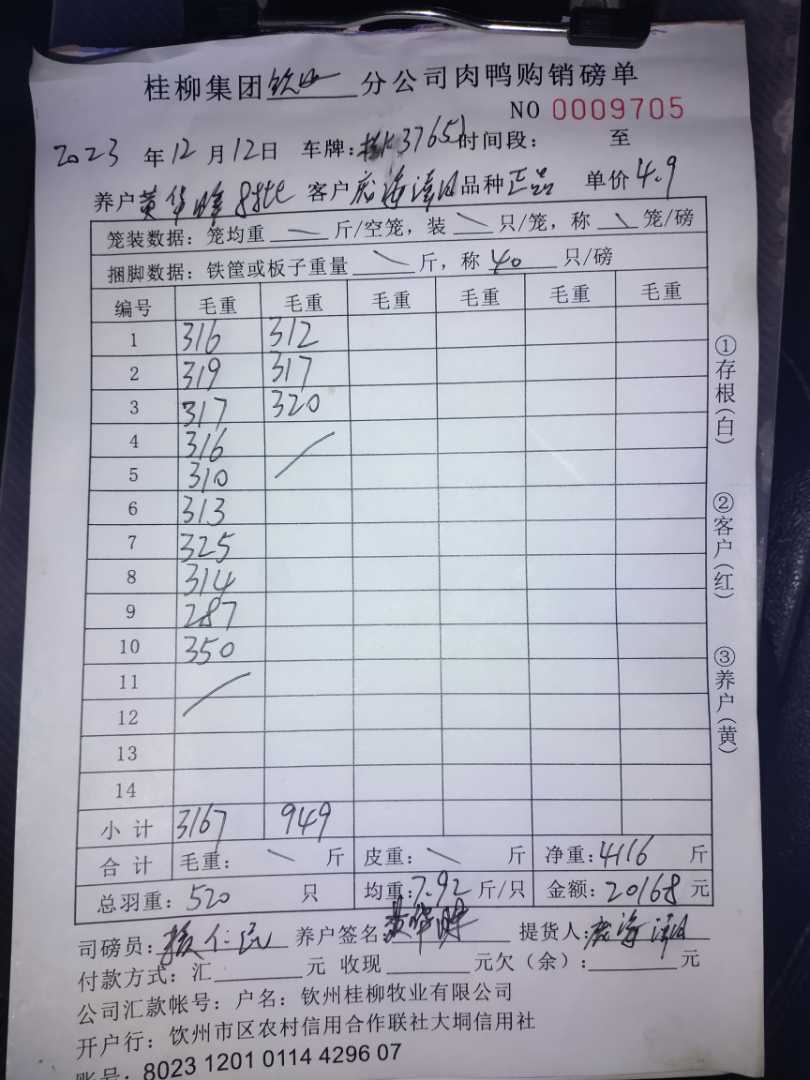 桂柳集团钦州分公司肉鸭购销磅单
NO 0009705
2023年12月12日 车牌: 37651 时间段: 至
养户黄华 8批 客户 海 品种正品 单价4.9
笼装数据: 笼均重 斤/空笼, 装 只/笼, 称 笼/磅
捆脚数据: 铁筐或板子重量 斤, 称 40 只/磅
编号 毛重 毛重 毛重 毛重 毛重 毛重
1 316 312
2 319 317
3 317 320
4 316
5 310
6 313
7 325
8 314
9 287
10 350
11
12
13
14
小计 3167 949
合计 毛重: 斤 皮重: 斤 净重: 4116 斤
总羽重: 520 只 均重: 7.92 斤/只 金额: 20168元
司磅员: 仁 养户签名 黄华 提货人: 海
付款方式: 汇 元 收现 元欠(余): 元
公司汇款帐号: 户名: 钦州桂柳牧业有限公司
开户行: 钦州市区农村信用合作联社大垌信用社
账号: 8023 1201 0114 4296 07
①存根(白)
②客户(红)
③养户(黄)